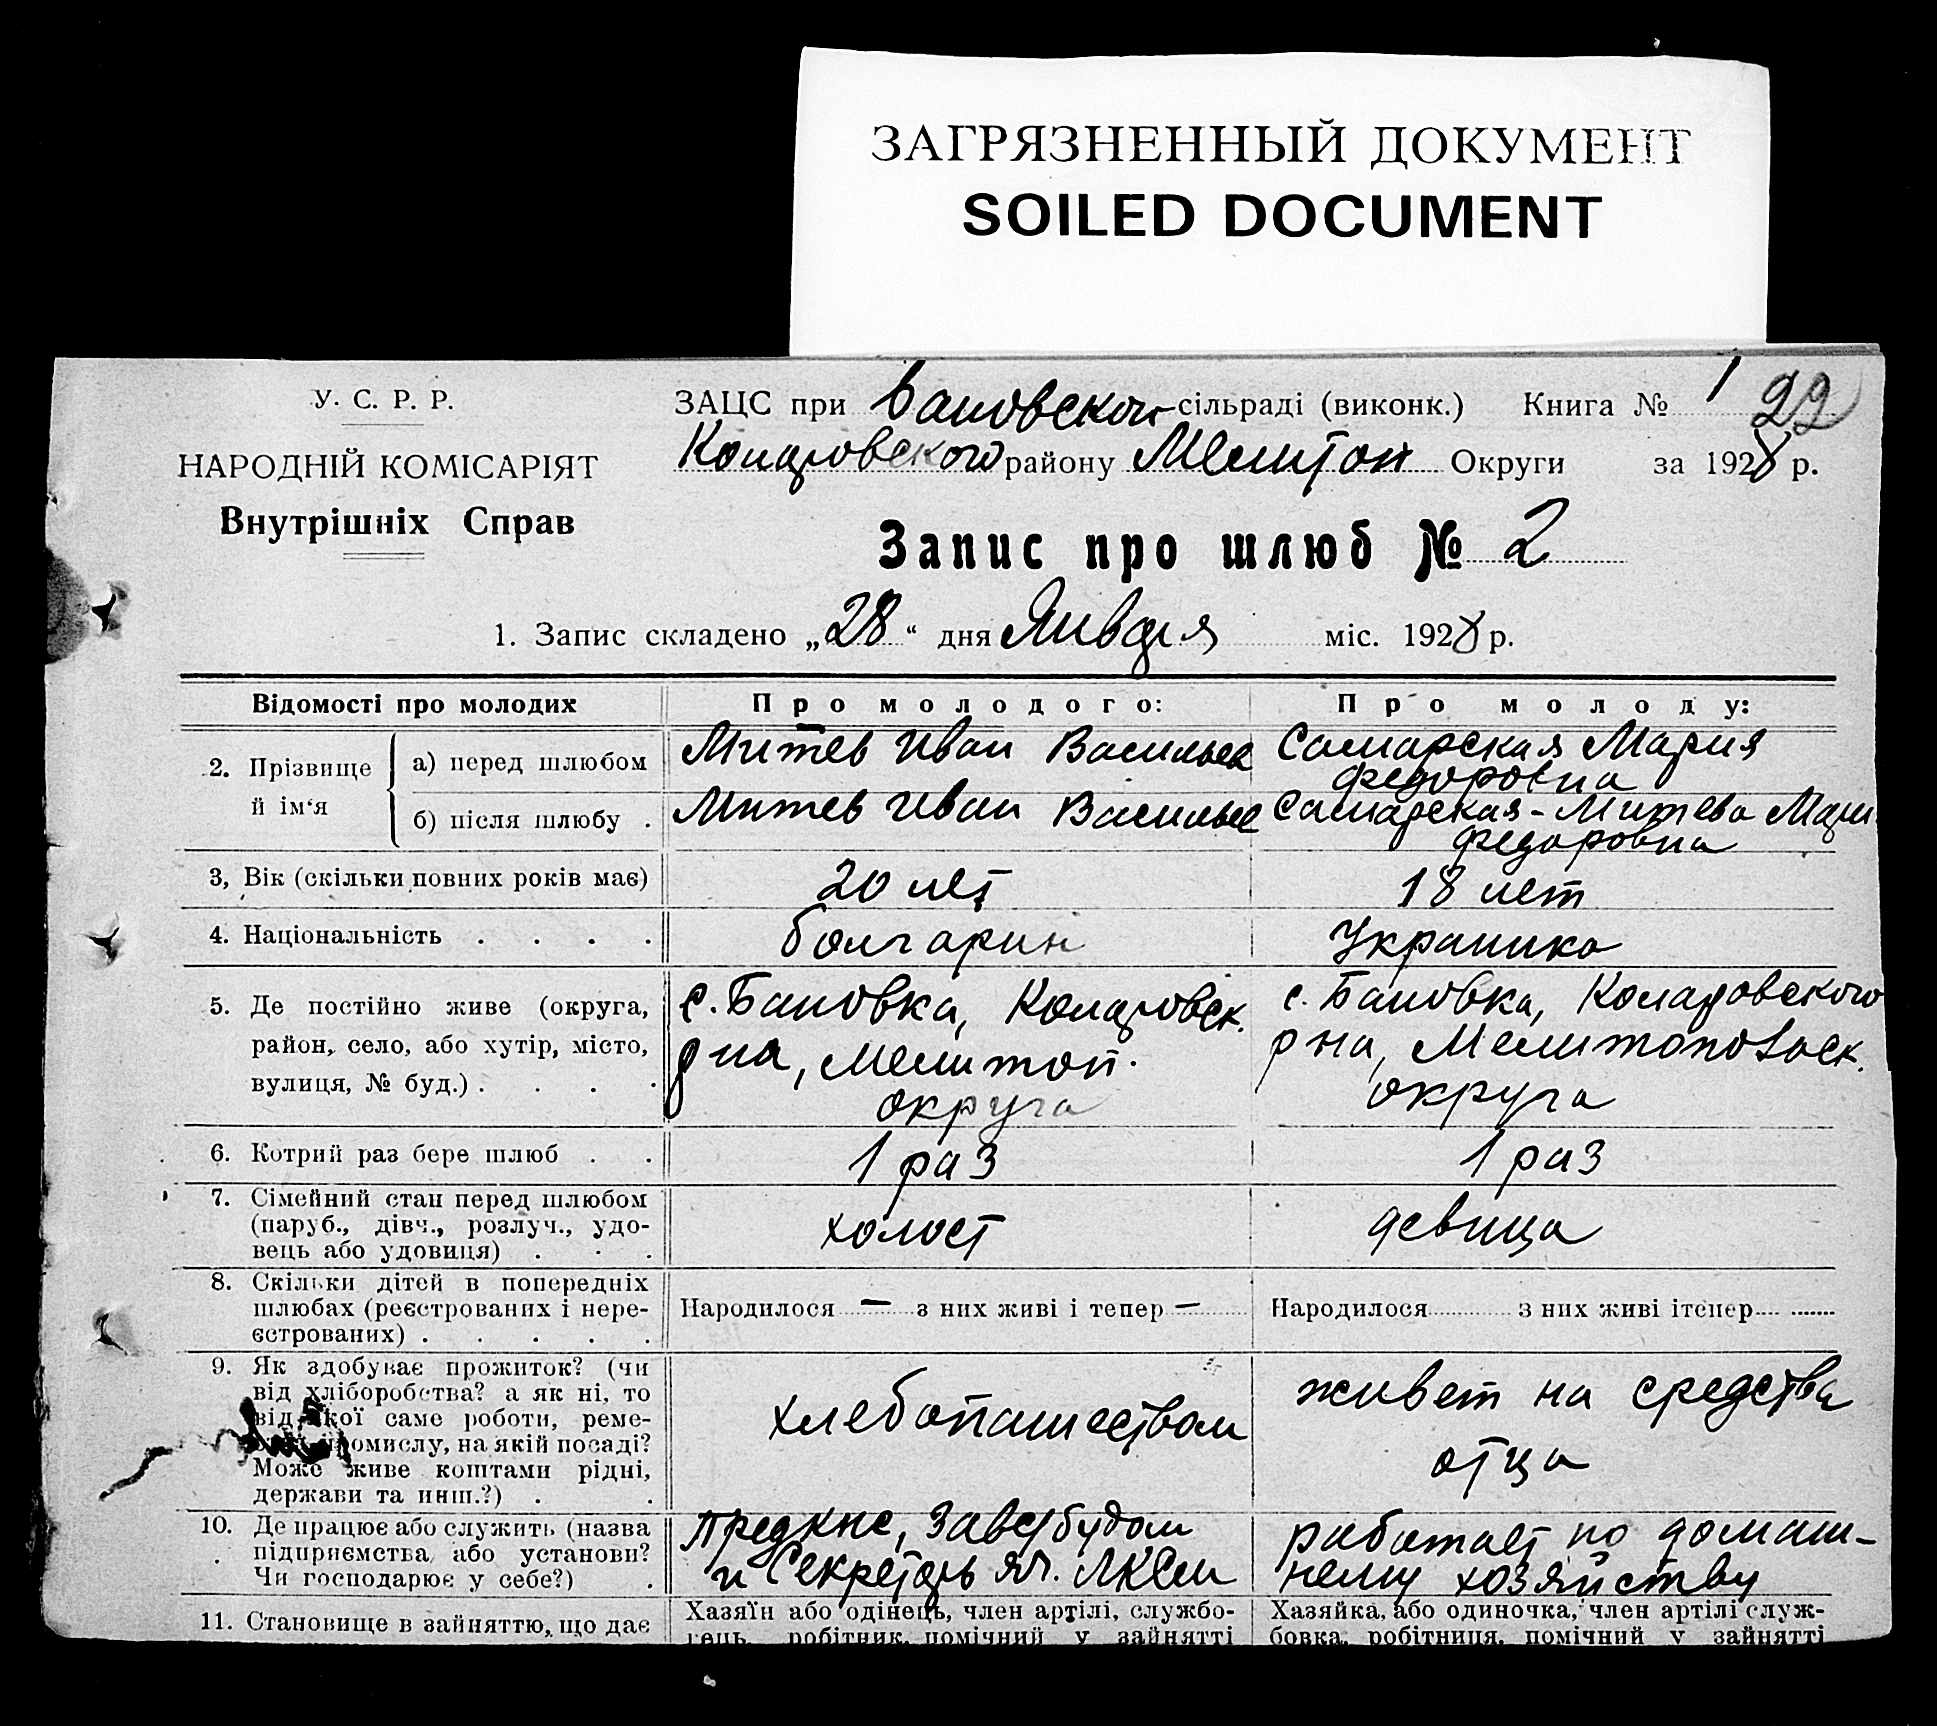 ЗАГРЯЗНЕННЫЙ ДОКУМЕНТ
SOILED DOCUMENT
У. С. Р. Р.
НАРОДНІЙ КОМІСАРІЯТ
Внутрішніх Справ
ЗАЦС при Бановском сільраді (виконк.) Книга № 1 22
Коларовского району Мелитоп Округи за 1928 р.
Запис про шлюб № 2
1. Запис складено „28“ дня Января міс. 1928 р.
Відомості про молодих Про молодого: Про молоду:
2. Прізвище й ім‘я
а) перед шлюбом Митев Иван Васильев Самарская Мария
Федоровна
б) після шлюбу . Митев Иван Васильев Самарская-Митева Мари
Федоровна
3, Вік (скільки повних років має) 20 лет 18 лет
4. Національність . . . . болгарин Украинка
5. Де постійно живе (округа, с. Бановка, Коларовск. с. Бановка, Коларовского
район, село, або хутір, місто, р на, Мелитоп. р на, Мелитоповск.
вулиця, № буд.) . . . . округа округа
6. Котрий раз бере шлюб . . 1 раз 1 раз
7. Сімейний стан перед шлюбом
(паруб., дівч., розлуч., удо- холост девица
вець або удовиця) . . .
8. Скільки дітей в попередніх
шлюбах (реєстрованих і нере- Народилося — з них живі і тепер — Народилося з них живі ітепер
єстрованих) . . . . .
9. Як здобуває прожиток? (чи
від хліборобства? а як ні, то живет на средства
від якої саме роботи, реме- хлебопашеством
промислу, на якій посаді? отца
Може живе коштами рідні,
держави та инш.?) . .
10. Де працює або служить (назва Предкнс, Завсбудом работает по домаш-
підприємства або установи? и Секретарь яч. ЛКСМ нему хозяйству
Чи господарює у себе?) .
11. Становище в зайняттю, що дає Хазяїн або одінець, член артілі, службо- Хазяйка, або одиночка, член артілі служ-
вець, робітник, помічний у зайнятті бовка, робітниця, помічний у зайнятті